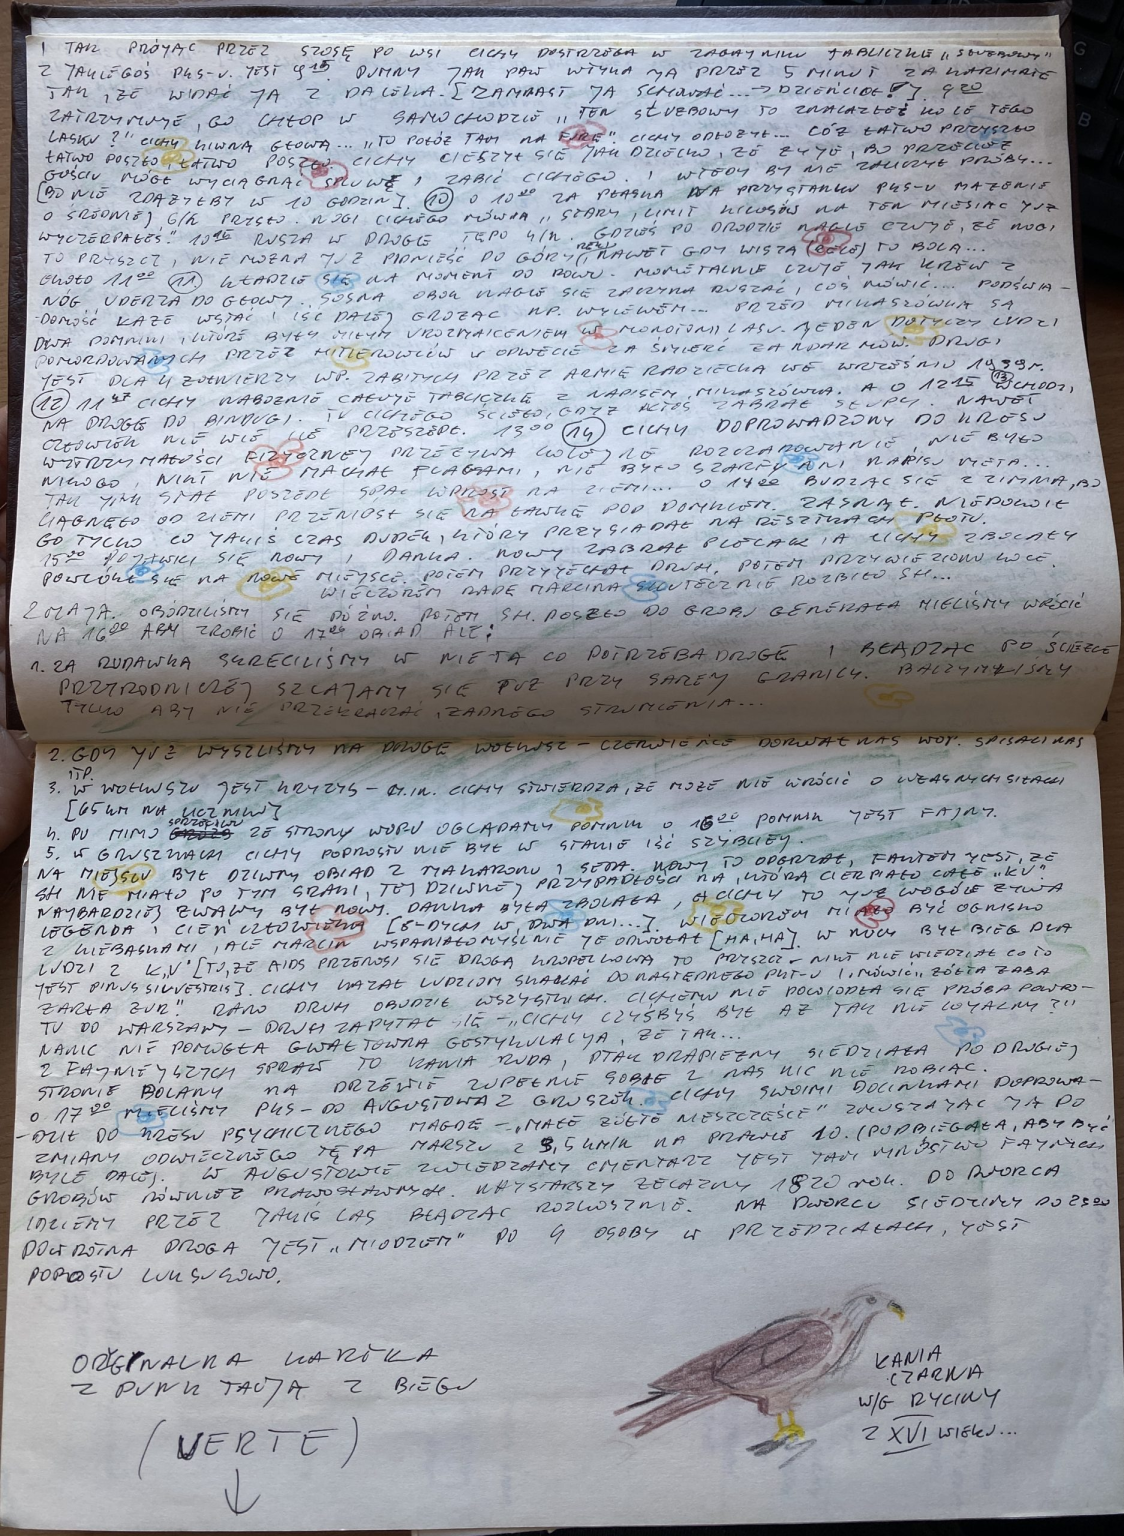 I TAK PRÓJĄC PRZEZ SZOSĘ PO WSI CICHY DOSTRZEGA W ZAGAJNIKU TABLICZKĘ „SŁUŻBOWY"
Z JAKIEGOŚ PKS-U. JEST 9 15. DUMNY JAK PAW WTYKA JĄ PRZEZ 5 MINUT ZA KARIMATĘ
TAK, ŻE WIDAĆ JĄ Z DALEKA. [ZAMIAST JĄ SCHOWAĆ... → DZIECIOE!]. 9 20
ZATRZYMUJE GO CHŁOP W SAMOCHODZIE „TEN SŁUŻBOWY TO ZNALAZŁEŚ KOLE TEGO
LASKU?" CICHY KIWNĄ GŁOWĄ... „TO POŁÓŻ TAM NA " CICHY ODŁOŻYŁ... CÓŻ ŁATWO PRZYSZŁO
ŁATWO POSZŁO, ŁATWO POSZŁO CICHY CIESZYŁ SIĘ JAK DZIECKO, ŻE ŻYJE, BO PRZECIEŻ
GOŚCIU MÓGŁ WYCIĄGNĄĆ I ZABIĆ CICHEGO. I WTEDY BY NIE ZALICZYŁ PRÓBY...
[BO NIE ZDĄŻYŁBY W 10 GODZIN]. (10) O 10 00 ZA PŁASKĄ NA PRZYSTANKU PKS-U MARZENIE
O ŚREDNIEJ 6/H PRYSŁO. NOGI CICHEGO MÓWIĄ „STARY, LIMIT KILOSÓW NA TEN MIESIĄC JUŻ
WYCZERPAŁEŚ." 10 15 RUSZA W DROGĘ TĘPO 4/H. GDZIEŚ PO DRODZE NAGLE CZUJE, ŻE NOGI
TO PRYSZCZ, NIE MOŻNA JUŻ PODNIEŚĆ DO GÓRY RĘKU, NAWET GDY WISZĄ TO BOLĄ...
OKOŁO 11 00 (11) KŁADZIE SIĘ NA MOMENT DO ROWU. MOMENTALNIE CZUJE JAK KREW Z
NÓG UDERZA DO GŁOWY. SOSNA OBOK NAGLE SIĘ ZACZYNA RUSZAĆ, COŚ MÓWIĆ... PODŚWIA-
DOMOŚĆ KAŻE WSTAĆ I IŚĆ DALEJ GROŻĄC NP. WYLEWEM... PRZED MIKASZÓWKĄ SĄ
DWA POMNIKI, KTÓRE BYŁY MIŁYM UROZMAICENIEM W MONOTONII LASU. JEDEN DOTYCZY LUDZI
POMORDOWANYCH PRZEZ HITLEROWCÓW W ODWECIE ZA ŚMIERĆ ŻANDARMÓW. DRUGI
JEST DLA 4 ŻOŁNIERZY WP. ZABITYCH PRZEZ ARMIĘ RADZIECKĄ WE WRZEŚNIU 1939 r.
(12) 11 47 CICHY NABOŻNIE CAŁUJE TABLICZKĘ Z NAPISEM, MIKASZÓWKA. A O 12 15 (13) WCHODZI,
NA DROGĘ DO BINDUGI. TU CICHEGO ŚCIĘŁO, GDYŻ KTOŚ ZABRAŁ SŁUPKI. NAWET
CZŁOWIEK NIE WIE ILE PRZESZEDŁ. 13 00 (14) CICHY DOPROWADZONY DO KRESU
WYTRZYMAŁOŚCI FIZYCZNEJ PRZEŻYWA KOLEJNE ROZCZAROWANIE, NIE BYŁO
NIKOGO, NIKT NIE MACHAŁ FLAGAMI, NIE BYŁO SZARFY ANI NAPISU META...
TAK JAK STAŁ POSZEDŁ SPAĆ WPROST NA ZIEMI... O 14 00 BUDZĄC SIĘ Z ZIMNA, BO
CIĄGNĘŁO OD ZIEMI PRZENIÓSŁ SIĘ NA ŁAWKĘ POD DOMKIEM. ZASNĄŁ. NIEPOKOIŁ
GO TYLKO CO JAKIŚ CZAS DUDEK, KTÓRY PRZYSIADAŁ NA RESZTKACH PŁOTU.
15 00 POJAWILI SIĘ NOWY I DANKA. NOWY ZABRAŁ PLECAK, A CICHY ZBOLAŁY
POWLÓKŁ SIĘ NA NOWE MIEJSCE. POTEM PRZYJECHAŁ DRUH, POTEM PRZYWIEZIONO KOCE.
WIECZOREM RADĘ MARCINA SKUTECZNIE ROZBIŁO SH...
2 MAJA. OBUDZILIŚMY SIĘ PÓŹNO. POTEM SH. POSZŁO DO GROBU GENERAŁA MIELIŚMY WRÓCIĆ
NA 16 00 ABY ZROBIĆ O 17 00 OBIAD ALE:
1. ZA RUDAWKĄ SKRĘCILIŚMY W NIE TĄ CO POTRZEBA DROGĘ I BŁĄDZĄC PO ŚCIEŻCE
PRZYRODNICZEJ SZLAJAMY SIĘ TUŻ PRZY SAMEJ GRANICY. BACZYMYLIŚMY
TYLKO ABY NIE PRZEKRACZAĆ ŻADNEGO STRUMIENIA...
2. GDY JUŻ WYSZLIŚMY NA DROGĘ WOŁKUSZ – CZERWIENKE DORWAŁ NAS WOP. SPISALI NAS
ITP.
3. W WOŁKUSZU JEST KRYZYS – M.IN. CICHY STWIERDZA, ŻE MOŻE NIE WRÓCIĆ O WŁASNYCH SIŁACH
[65 KM NA LICZNIKU]
4. PO MIMO SPRZECIWU ZE STRONY WOPU OGLĄDAMY POMNIK O 16 00 POMNIK JEST FAJNY.
5. W GRUSZKACH CICHY POPROSTU NIE BYŁ W STANIE IŚĆ SZYBCIEJ.
NA MIEJSCU BYŁ DZIWNY OBIAD Z MAKARONU I SERA. NOWY TO ODGRZAŁ, FAKTEM JEST, ŻE
SH NIE MIAŁO PO TYM SRAKI, TEJ DZIWNEJ PRZYPADŁOŚCI NA, KTÓRĄ CIERPIAŁO CAŁE „KV".
NAJBARDZIEJ ŻWAWY BYŁ NOWY. DANKA BYŁA ZBOLAŁA, A CICHY TO JUŻ WOGÓLE ŻYWA
LEGENDA I CIEŃ CZŁOWIEKA [8-DYCH W, DWA DNI...]. WIECZOREM MIAŁO BYĆ OGNISKO
Z KIEŁBASKAMI, ALE MARCIN WSPANIAŁOMYŚLNIE JE ODWOŁAŁ [HA, HA]. W NOCY BYŁ BIEG DLA
LUDZI Z K,V" [TO, ŻE AIDS PRZENOSI SIĘ DROGĄ KROPELKOWĄ TO PRYSZCZ – NIKT NIE WIEDZIAŁ CO TO
JEST PINUS SILVESTRIS]. CICHY KAZAŁ LUDZIOM SKAKAĆ DO NASTĘPNEGO PKT-U I „MÓWIĆ „ŻÓŁTA ŻABA
ŻARŁA ŻUR". RANO DRUH OBUDZIŁ WSZYSTKICH. CICHEMU NIE POWIODŁA SIĘ PRÓBA POWRO-
TU DO WARSZAWY – DRUH ZAPYTAŁ SIĘ – „CICHY CZYŚBYŚ BYŁ AŻ TAK NIE LOJALNY?"
NA NIC NIE POMOGŁA GWAŁTOWNA GESTYKULACJA, ŻE TAK...
Z FAJNIEJSZYCH SPRAW TO KANIA RUDA, PTAK DRAPIEŻNY SIEDZIAŁA PO DRUGIEJ
STRONIE POLANY NA DRZEWIE ZUPEŁNIE SOBIE Z NAS NIC NIE ROBIĄC.
O 17 00 MIELIŚMY PKS- DO AUGUSTOWA Z GRUSZEK. CICHY SWOIMI DOCINKAMI DOPROWA-
-DZIŁ DO KRESU PSYCHICZNEGO MAGDĘ – „MAŁE ŻÓŁTE NIESZCZĘŚCIE" ZMUSZAJĄC JĄ DO
ZMIANY ODWIECZNEGO TĘPA MARSZU Z 3,5 KM/H NA PRAWIE 10. (PODBIEGAŁA, ABY BYĆ
BYLE DALEJ. W AUGUSTOWIE ZWIEDZAMY CMENTARZ JEST TAM MNÓSTWO FAJNYCH
GROBÓW RÓWNIEŻ PRAWOSŁAWNYCH. NAJSTARSZY ŻELAZNY 1820 rok. DO DWORCA
IDZIEMY PRZEZ JAKIŚ LAS BŁĄDZĄC ROZKOSZNIE. NA DWORCU SIEDZIMY DO 23 00
POWROTNA DROGA JEST „MIODZEM" PO 4 OSOBY W PRZEDZIAŁACH, JEST
POPROSTU LUKSUSOWO.
ORGINALNA KARTKA
Z PUNKTACJĄ Z BIEGU
(VERTE)
KANIA
CZARNA
W/G RYCINY
Z XVI WIEKU...